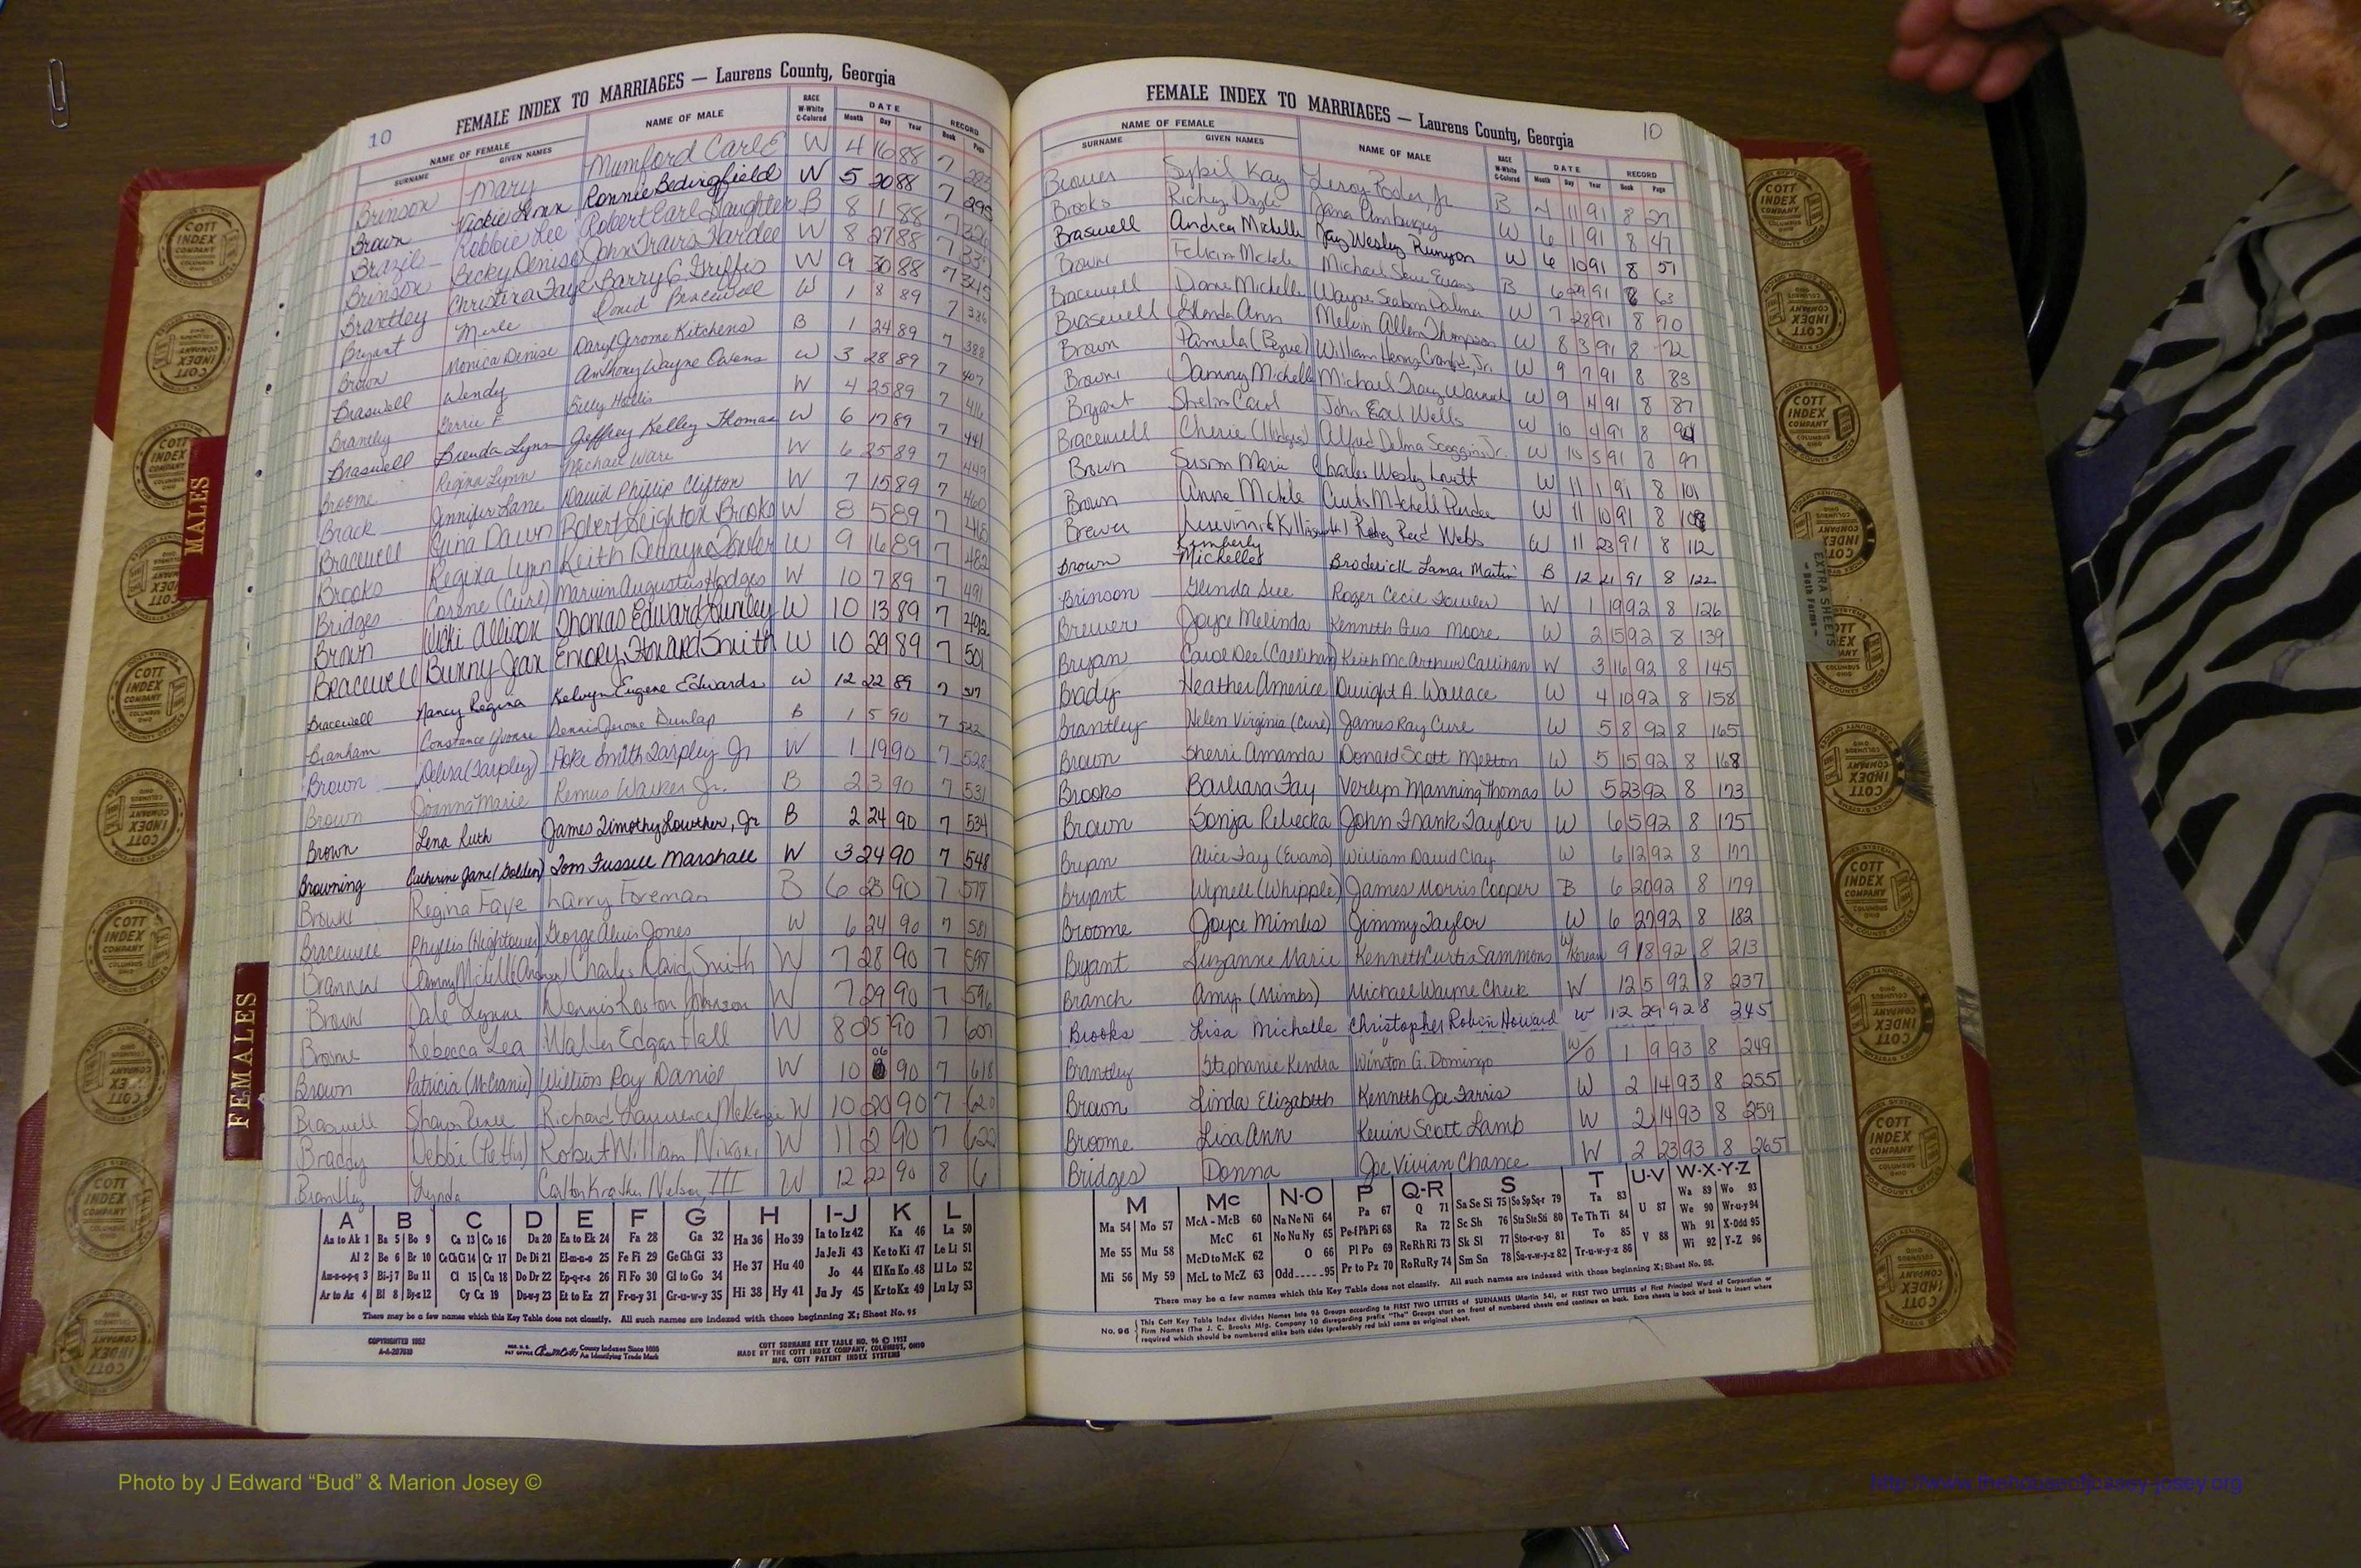 10 FEMALE INDEX TO MARRIAGES — Laurens County, Georgia
NAME OF FEMALE NAME OF MALE RACE W-White C-Colored DATE RECORD
SURNAME GIVEN NAMES Month Day Year Book Page
Brinson Mary Mumford Carl E W 4 16 88 7 283
Brown Vickie Lynn Ronnie Bedingfield W 5 20 88 7 295
Brazil Robbie Lee Robert Earl Daughter B 8 1 88 7
Brinson Becky Denise John Travis Hardee W 8 27 88 7
Brantley Christina Faye Barry G. Griffis W 9 30 88 7 345
Bryant Merle David Bracewell W 1 8 89 7 386
Brown Monica Denise Daryl Jerome Kitchens B 1 24 89 7 388
Braswell Wendy Anthony Wayne Owens W 3 28 89 7 407
Brantley Gerrie F Billy Hollis W 4 25 89 7 416
Braswell Brenda Lynn Jeffrey Kelley Thomas W 6 17 89 7 441
Broome Regina Lynn Michael Ware W 6 25 89 7 449
Brack Jennifer Lane David Phillip Clifton W 7 15 89 7 460
Bracewell Gina Dawn Robert Leighton Brooks W 8 5 89 7 468
Brooks Regina Lynn Keith Dewayne Fowler W 9 16 89 7 482
Bridges Corine (Cure) Marvin Augustus Hodges W 10 7 89 7 491
Brown Vicki Allison Thomas Edward Hunley W 10 13 89 7 492
Bracewell Bunny Jean Emory Howard Smith W 10 29 89 7 501
Bracewell Nancy Regina Kelvyn Eugene Edwards W 12 22 89 7 517
Branham Constance Yvonne Dennis Jerome Dunlap B 1 5 90 7 522
Brown Debra (Tarpley) Hoke Smith Tarpley Jr W 1 19 90 7 528
Brown Joanna Marie Remus Walker Jr. B 2 3 90 7 531
Brown Lena Ruth James Timothy Lowther, Jr B 2 24 90 7 534
Browning Catherine Jane (Golden) Tom Fussell Marshall W 3 24 90 7 548
Brown Regina Faye Larry Foreman B 6 23 90 7 578
Bracewell Phyllis (Hightower) George Alvis Jones W 6 24 90 7 581
Brannen Tammy Michelle Charles David Smith W 7 28 90 7 597
Brown Dale Lynne Dennis Loston Johnson W 7 29 90 7 596
Broome Rebecca Lea Walter Edgar Hall W 8 05 90 7 607
Brown Patricia (McCranie) William Roy Daniel W 10 06 90 7 618
Braswell Sharon Renee Richard Lawrence McKenzie W 10 20 90 7 620
Braddy Debbie (Pettis) Robert William Nixon W 11 2 90 7 622
Brantley Lynda Carlton Nelson III W 12 22 90 8 6
A B C D E F G H I-J K L
Aa to Ak 1 Ba 5 Bo 9 Ca 13 Co 16 Da 20 Ea to Ek 24 Fa 28 Ga 32 Ha 36 Ho 39 Ia to Iz 42 Ka 46 La 50
Al 2 Be 6 Br 10 Ce Ch Ci 14 Cr 17 De Di 21 El-m-n-o 25 Fe Fi 29 Ge Gh Gi 33 He 37 Hu 40 Ja Je Ji 43 Ke to Ki 47 Le Li 51
Am-n-o-p-q 3 Bi-j 7 Bu 11 Cl 15 Cu 18 Do Dr 22 Ep-q-r-s 26 Fl Fo 30 Gl to Go 34 Jo 44 Kl Kn Ko 48 Ll Lo 52
Ar to Az 4 Bl 8 By-z 12 Cy Cz 19 Du-w-y 23 Et to Ez 27 Fr-u-y 31 Gr-u-w-y 35 Hi 38 Hy 41 Ju Jy 45 Kr to Kz 49 Lu Ly 53
There may be a few names which this Key Table does not classify. All such names are indexed with those beginning X; Sheet No. 95
COPYRIGHTED 1952
County Indexes Since 1888
An Identifying Trade Mark
COTT SURNAME KEY TABLE NO. 96 © 1957
MADE BY THE COTT INDEX COMPANY, COLUMBUS, OHIO
MFG. COTT PATENT INDEX SYSTEMS
FEMALE INDEX TO MARRIAGES — Laurens County, Georgia 10
NAME OF FEMALE NAME OF MALE RACE W-White C-Colored DATE RECORD
SURNAME GIVEN NAMES Month Day Year Book Page
Sybil Kay Leroy Jr B 4 11 91 8 27
Brooks Richey Dayle Dana W 6 1 91 8 47
Braswell Andrea Michelle Jay Wesley Runyon W 6 10 91 8 51
Brown Felicia Michele Michael Evans B 6 29 91 8 63
Bracewell Diane Michelle Wayne Seabon W 7 28 91 8 70
Braswell Glenda Ann Melvin Allen Thompson W 8 3 91 8 72
Brown Pamela William Henry Jr. W 9 7 91 8 83
Brown Tammy Michelle Michael Tracy Warnock W 9 4 91 8 87
Bryant Shelia Carol John Earl Wells W 10 4 91 8
Bracewell Cherie (Hodges) Alfred Delma Scoggins Jr. W 10 5 91 8 97
Brown Susan Marie Charles Wesley Lovett W 11 1 91 8 101
Brown Anne Michele Curtis Mitchell Purdee W 11 10 91 8 108
Brewer Rodney Reed Webb W 11 23 91 8 112
Brown Kimberly Michelle Broderick Lamar Martin B 12 21 91 8 122
Brinson Glenda Sue Roger Cecil Fowler W 1 19 92 8 126
Brewer Joyce Melinda Kenneth Gus Moore W 2 15 92 8 139
Bryan Carol Dee (Callihan) Keith McArthur Callihan W 3 16 92 8 145
Brady Heather Americe Dwight A. Wallace W 4 10 92 8 158
Brantley Helen Virginia (Cure) James Ray Cure W 5 8 92 8 165
Brown Sherri Amanda Donald Scott Melton W 5 15 92 8 168
Brooks Barbara Fay Verlyn Manning Thomas W 5 23 92 8 173
Brown Sonja Rebecka John Frank Taylor W 6 5 92 8 175
Bryan Alice Fay (Evans) William David Clay W 6 12 92 8 177
Bryant Wynell (Whipple) James Morris Cooper B 6 20 92 8 179
Broome Joyce Mimbs Jimmy Taylor W 6 27 92 8 182
Bryant Suzanne Marie Kenneth Curtis Sammons W/Korean 9 18 92 8 213
Branch Amy (Mimbs) Michael Wayne Cheek W 12 5 92 8 237
Brooks Lisa Michelle Christopher Robin Howard W 12 29 92 8 245
Brantley Stephanie Kendra Winston G. Domingo W/O 1 9 93 8 249
Brown Linda Elizabeth Kenneth Joe Farris W 2 14 93 8 255
Broome Lisa Ann Kevin Scott Lamb W 2 14 93 8 259
Bridges Donna Joe Vivian Chance W 2 23 93 8 265
M Mc N-O P Q-R S T U-V W-X-Y-Z
Ma 54 Mo 57 McA - McB 60 Na Ne Ni 64 Pa 67 Q 71 Sa Se Si 75 So Sp Sq-r 79 Ta 83 U 87 Wa 89 Wo 93
Me 55 Mu 58 McC 61 No Nu Ny 65 Pe-f Ph Pi 68 Ra 72 Sc Sh 76 Sta Ste Sti 80 Te Th Ti 84 We 90 Wr-u-y 94
McD to McK 62 O 66 Pl Po 69 Re Rh Ri 73 Sk Sl 77 Sto-r-u-y 81 To 85 V 88 Wh 91 X-Odd 95
Mi 56 My 59 McL to McZ 63 Odd 95 Pr to Pz 70 Ro Ru Ry 74 Sm Sn 78 Su-v-w-y-z 82 Tr-u-w-y-z 86 Wi 92 Y-Z 96
There may be a few names which this Key Table does not classify. All such names are indexed with those beginning X; Sheet No. 95.
No. 96 This Cott Key Table Index divides Names into 96 Groups according to FIRST TWO LETTERS of SURNAMES (Martin 54), or FIRST TWO LETTERS of First Principal Word of Corporation or
Firm Names (The J. C. Brooks Mfg. Company 10 disregarding prefix "The" Groups start on front of numbered sheets and continue on back. Extra sheets in back of book to insert where
required which should be numbered alike both sides (preferably red ink) same as original sheet.
MALES
FEMALES
EXTRA SHEETS
COTT INDEX COMPANY COLUMBUS OHIO
Photo by J Edward “Bud” & Marion Josey ©
http://www.thehouseofjossey-josey.org